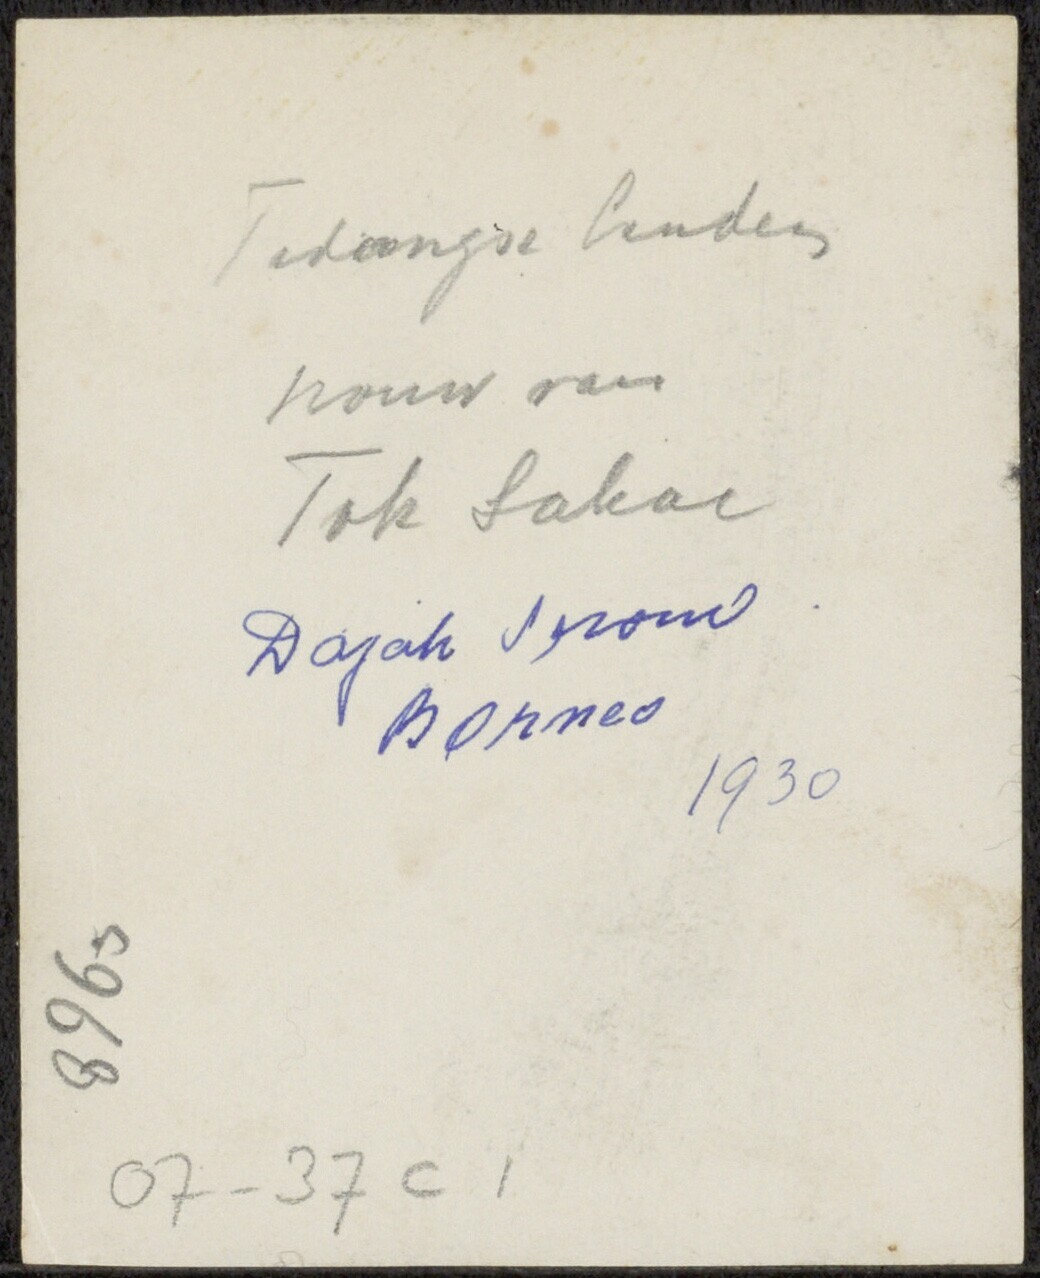 Tidoengse landen
vrouw van
Tok Sakai
Dajak vrouw
Borneo
1930
8965
07-37 C 1